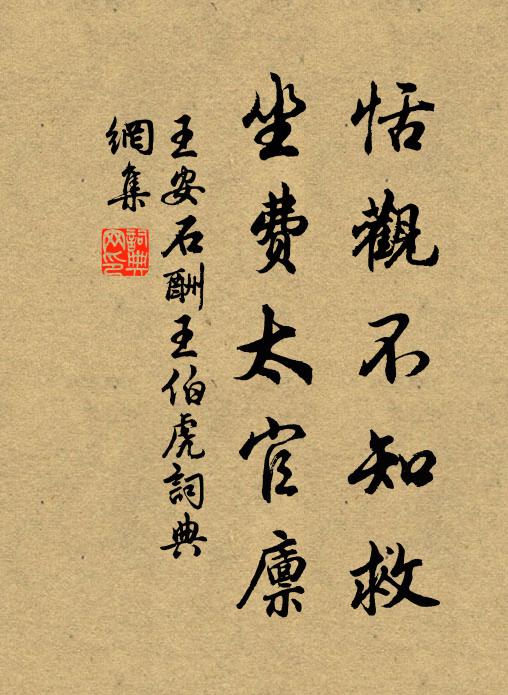 恬觀不知救
坐費太官廩
王安石酬王伯虎詞典
網集
詞典網印